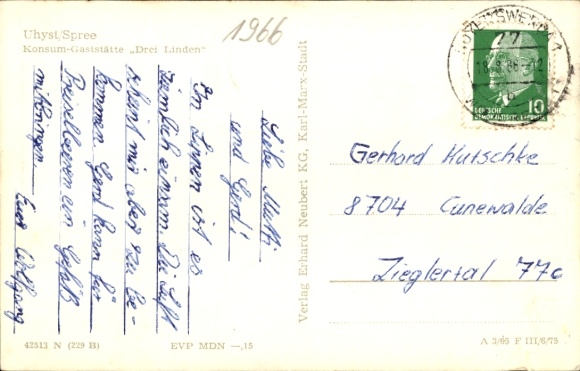 Uhyst/Spree
Konsum-Gaststätte „Drei Linden"
1966
Liebe Mutti
und Gerd!
In Lippen ist es
ziemlich einsam. Die Luft
scheint mir aber zu be-
kommen. Gerd kann für
Preiselbeeren ein Gefäß
mitbringen.
Euer Wolfgang
42513 N (229 B)
EVP MDN —,15
Verlag Erhard Neubert KG, Karl-Marx-Stadt
77
10
DEUTSCHE
DEMOKRATISCHE REPUBLIK
Gerhard Hutschke
8704 Cunewalde
Zieglertal 77c
A 3/65 F III/6/75